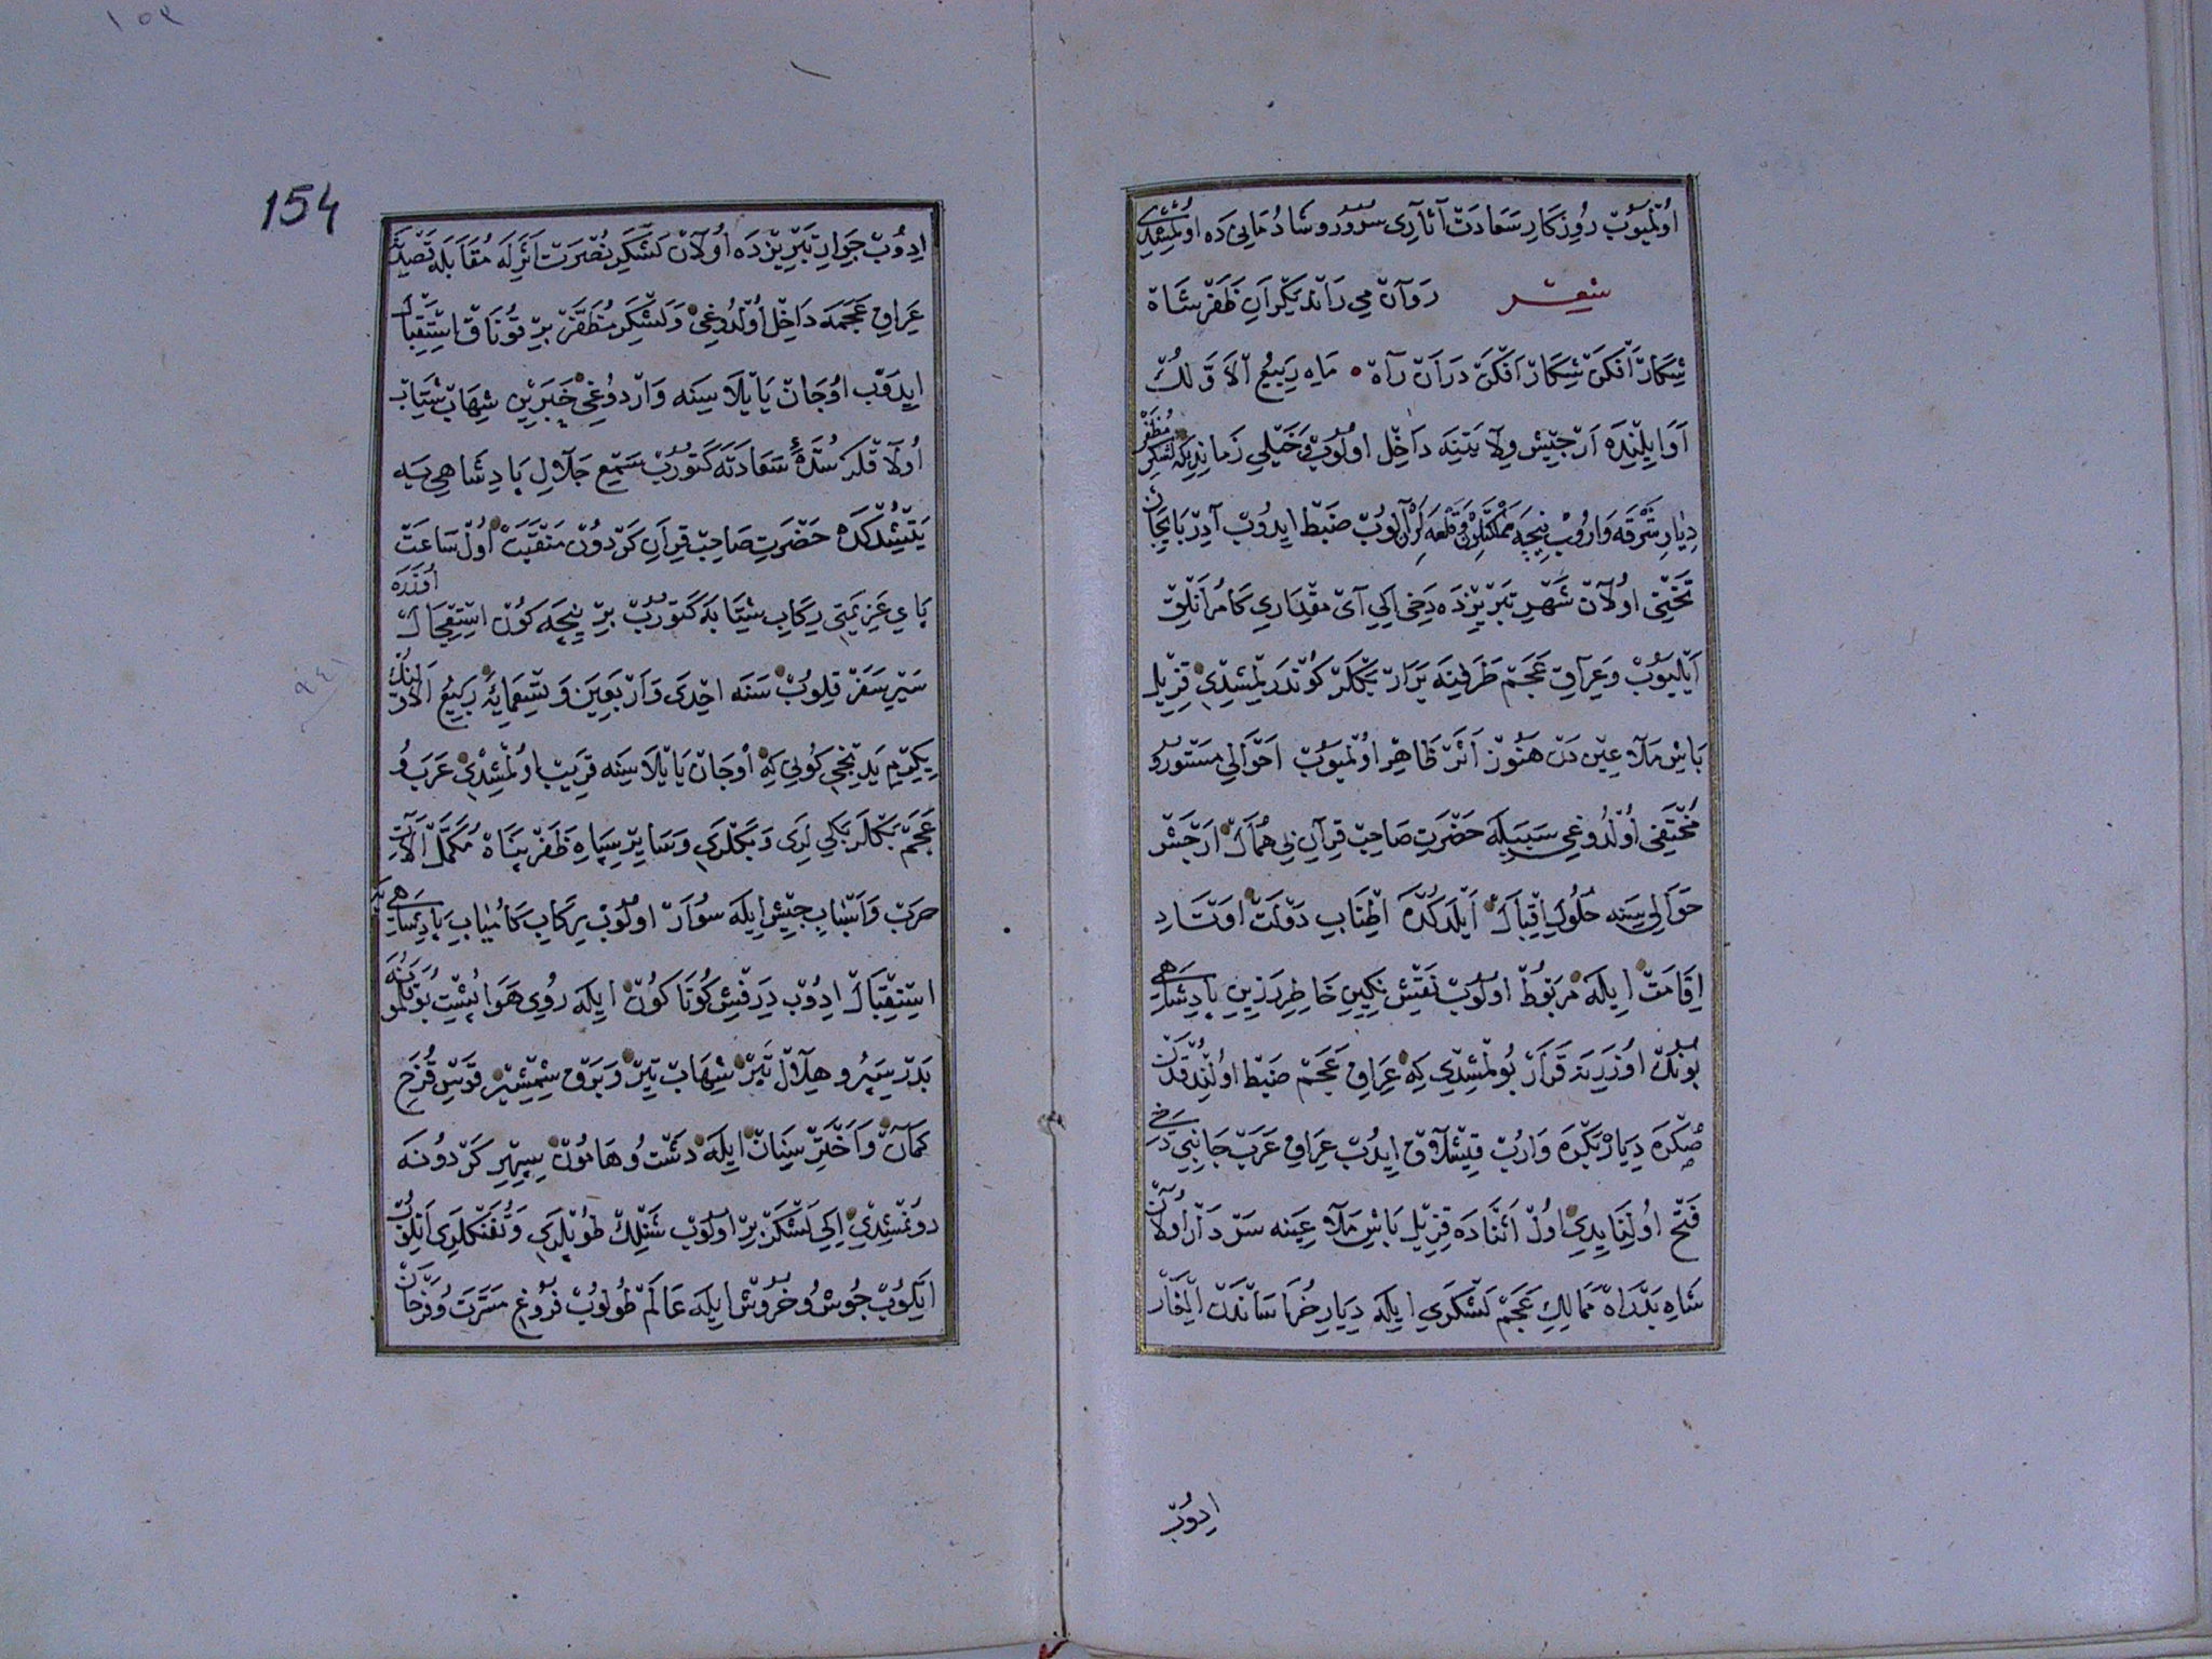 اولمیوب روزکار سعادت آثاری سرور و شادمانی ده اولمشدی
شعر روان می راند یکران ظفر شاه
شکار افکن شکار افکن دران راه ماه ربیع الاولک
اوایلنده ارجیش ولایتینه داخل اولوب خیلی زماندیکه لشکر مظفر
دیار شرقه واروب نیجه مملکتلر و قلعه لر آلوب ضبط ایدوب آذربایجان
تختی اولان شهر تبریزده دخی ایکی آی مقداری کامرانلق
ایلیوب و عراق عجم طرفینه برار بکلر کوندرلمشدی قزیل
باش ملاعین دن هنوز اثر ظاهر اولمیوب احوالی مستور و
مختفی اولدوغی سببیله حضرت صاحب قران بی همال ارجش
حوالی سینه حلول اقبال ایلدکده اطناب دولت اوتاد
اقامت ایله مربوط اولوب نقش نکین خاطر رزین پادشاهی
بونک اوزرینه قرار بولمشدی که عراق عجم ضبط اولندقدن
صکره دیار بکره واروب قیشلاق ایدوب عراق عرب جانبی دخی
فتح اولنایدی اول اثناده قزیل باش ملاعینه سردار اولان
شاه بدراه ممالک عجم لشکری ایله دیار خراساندن ایلغار
ایدوب
154
ایدوب جوار تبریزده اولان لشکر نصرت اثرله مقابله قصدینه
عراق عجمه داخل اولدوغی و لشکر مظفر بر قوناق استقبال
ایدوب اوجان یایلاسینه واردوغی خبرین شهاب شتاب
اولاقلر سده سعادته کتورب سمع جلال پادشاهی یه
یتیشدکده حضرت صاحب قران کردون منقبت اول ساعت
پای عزیمتی رکاب شتابه کتورب بر نیجه کون استعجال اوزره
سیر سفر قلوب سنه احدی واربعین وتسعمایه ربیع الاولینک
یکرم یدنجی کونی که اوجان یایلاسینه قریب اولمشدی عرب و
عجم بکلر بکی لری و بکلری و سایر سپاه ظفر پناه مکمل آلات
حرب و اسباب جیش ایله سوار اولوب رکاب کامیاب پادشاهی یه
استقبال ادوب درفش کوناکون ایله روی هوا پشت بوقلمونه
بدر سپر و هلال تبر شهاب تیر و برق شمشیر قوس قزح
کمان و اختر سنان ایله دشت و هامون سپهر کردونه
دونمشدی ایکی لشکر بر اولوب شنلک طوپلری و تفنکلری اتلوب
ایکوب جوش و خروش ایله عالم طولوب فروغ مسرت و فرحان
٩٤١